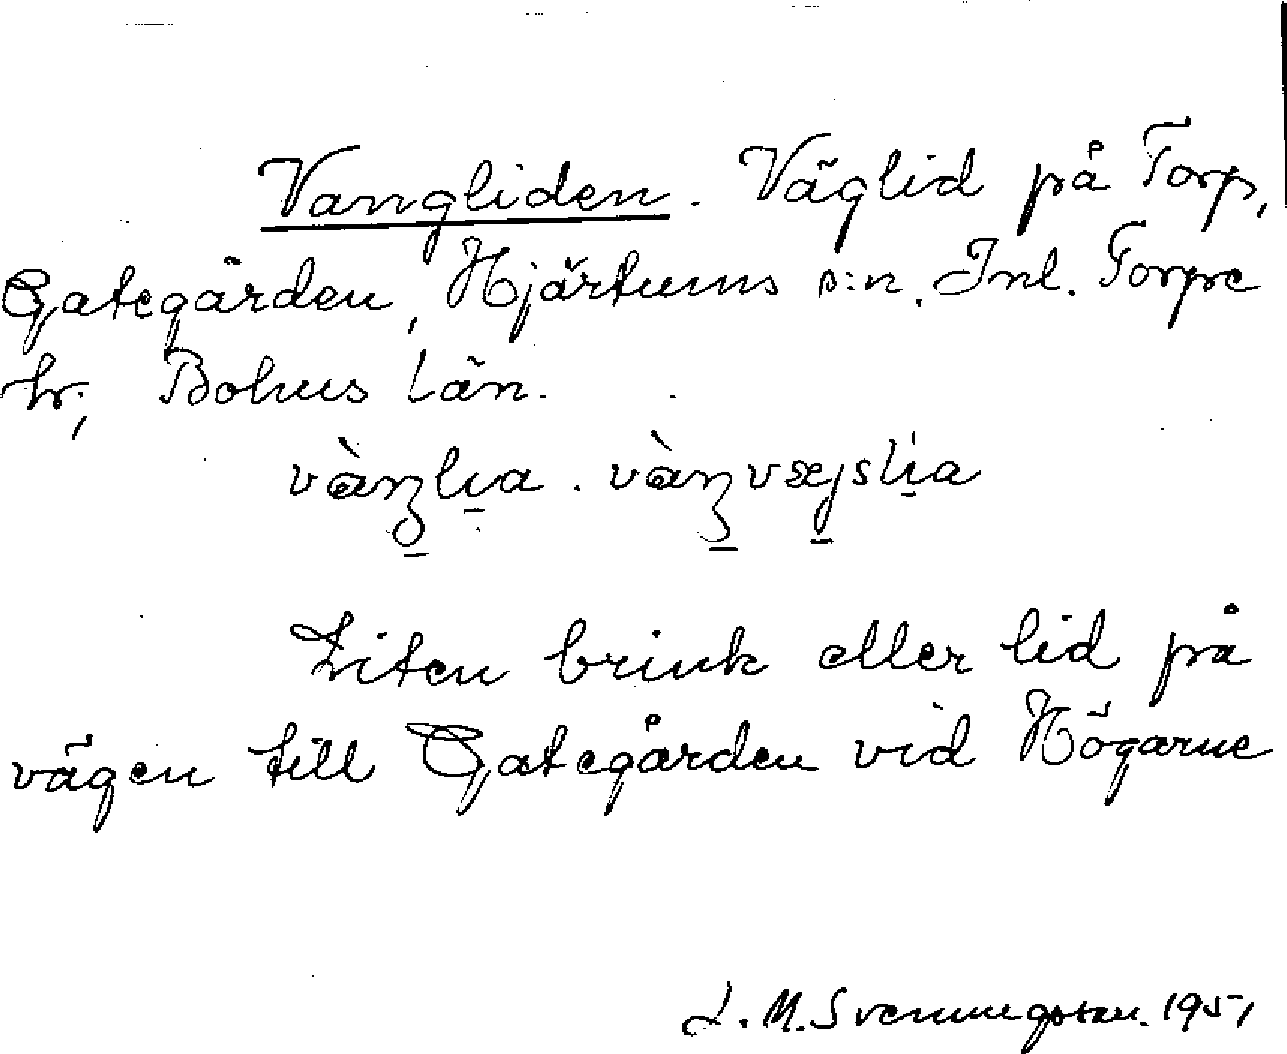 Vangliden. Väglid på Torp,
Gategården, Hjärtums s:n. Inl. Torpe
hr, Bohus län.
Liten brink eller lid på
vägen till Gategården vid Högarne
L. M. Svenungsson. 1951